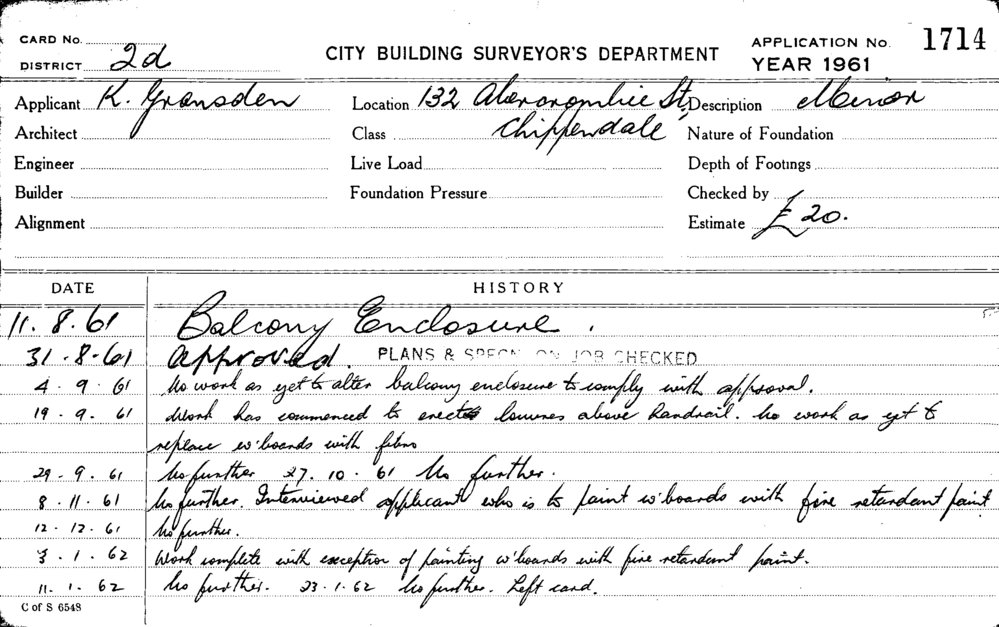 CARD No.
DISTRICT 2d
CITY BUILDING SURVEYOR'S DEPARTMENT
APPLICATION No. 1714
YEAR 1961
Applicant K. Gransden Location 132 Abercrombie St, Description Minor
Architect Class Chippendale Nature of Foundation
Engineer Live Load Depth of Footings
Builder Foundation Pressure Checked by
Alignment Estimate £20.
DATE HISTORY
11. 8. 61 Balcony Enclosure.
31. 8. 61 Approved. PLANS & SPECN ON JOB CHECKED
4. 9. 61 No work as yet to alter balcony enclosure to comply with approval.
19. 9. 61 Work has commenced to erect louvres above handrail. No work as yet to
replace w'boards with fibro
29. 9. 61 No further 27. 10. 61 No further.
8. 11. 61 No further. Interviewed applicant who is to paint w'boards with fire retardant paint
12. 12. 61 No further.
3. 1. 62 Work complete with exception of painting w'boards with fire retardant paint.
11. 1. 62 No further. 23. 1. 62 No further. Left card.
C of S 6548